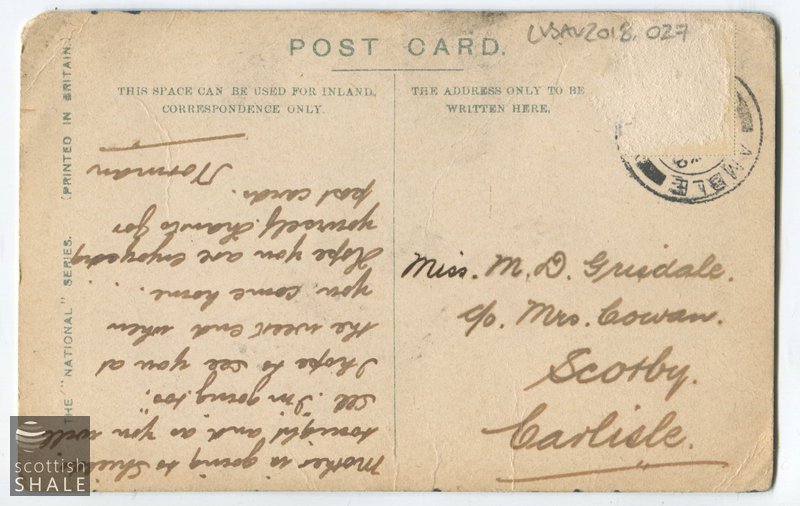 LVSAV2018.027
POST CARD.
THIS SPACE CAN BE USED FOR INLAND,
CORRESPONDENCE ONLY.
THE ADDRESS ONLY TO BE
WRITTEN HERE,
THE "NATIONAL" SERIES. (PRINTED IN BRITAIN.)
AMBLE
Miss. M. D. Grisdale.
c/o. Mrs. Cowan.
Scotby.
Carlisle.
Mother is going to
tonight and, as you will
see I'm going too.
I hope to see you at
the week end when
you come home.
Hope you are enjoying
yourself. Thanks for
post cards.
Norman
scottish
SHALE